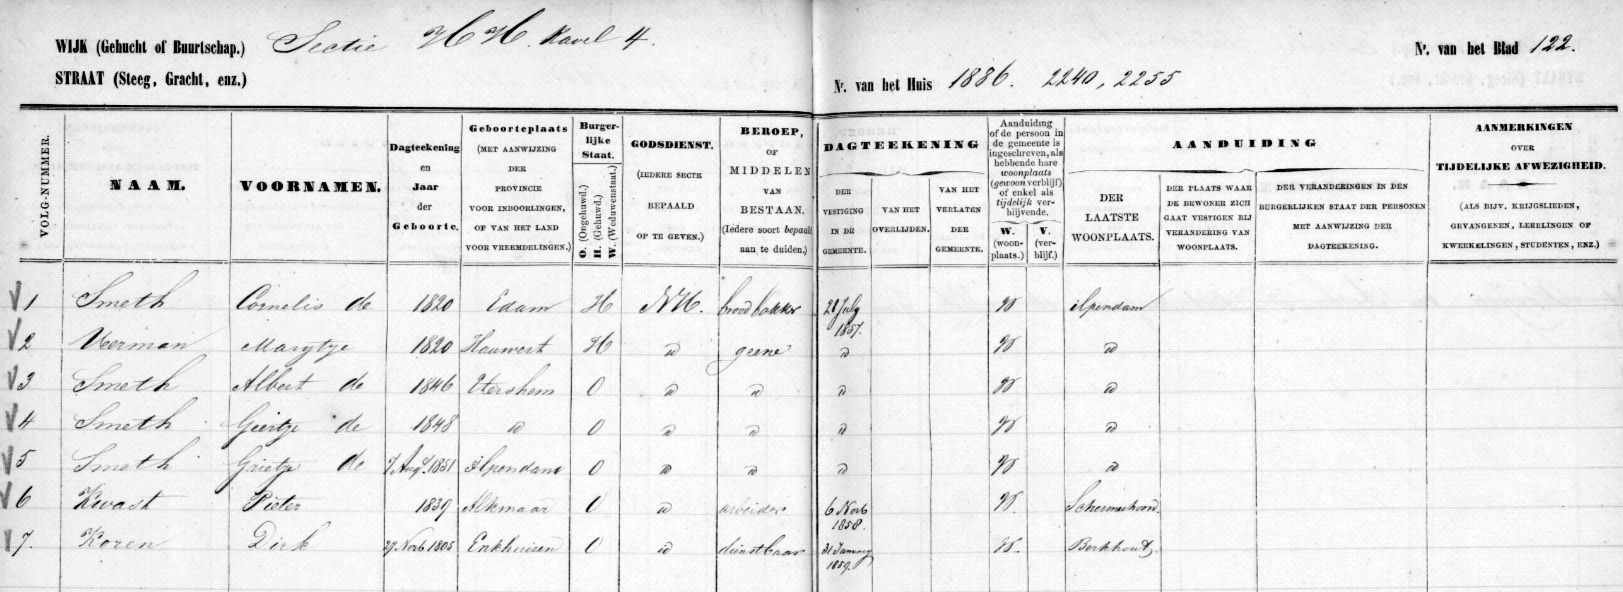 WIJK (Gehucht of Buurtschap.) Sectie HH. Kavel 4.
Nr. van het Blad 122.
STRAAT (Steeg, Gracht, enz.)
Nr. van het Huis 1886. 2240, 2255
VOLG-NUMMER.
NAAM.
VOORNAMEN.
Dagteekening
en
Jaar
der
Geboorte.
Geboorteplaats
(MET AANWIJZING
DER
PROVINCIE
VOOR INBOORLINGEN,
OF VAN HET LAND
VOOR VREEMDELINGEN.)
Burger-
lijke
Staat.
O. (Ongehuwd.)
H. (Gehuwd.)
W. (Weduwenstaat.)
GODSDIENST.
(IEDERE SECTE
BEPAALD
OP TE GEVEN.)
BEROEP,
OF
MIDDELEN
VAN
BESTAAN.
(Iedere soort bepaald
aan te duiden.)
DAGTEEKENING
DER
VESTIGING
IN DE
GEMEENTE.
VAN HET
OVERLIJDEN.
VAN HET
VERLATEN
DER
GEMEENTE.
Aanduiding
of de persoon in
de gemeente is
ingeschreven, als
hebbende hare
woonplaats
(gewoon verblijf)
of enkel als
tijdelijk ver-
blijvende.
W.
(woon-
plaats.)
V.
(ver-
blijf.)
AANDUIDING
DER
LAATSTE
WOONPLAATS.
DER PLAATS WAAR
DE BEWONER ZICH
GAAT VESTIGEN BIJ
VERANDERING VAN
WOONPLAATS.
DER VERANDERINGEN IN DEN
BURGERLIJKEN STAAT DER PERSONEN
MET AANWIJZING DER
DAGTEEKENING.
AANMERKINGEN
OVER
TIJDELIJKE AFWEZIGHEID.
(ALS BIJV. KRIJGSLIEDEN,
GEVANGENEN, LEERLINGEN OF
KWEEKELINGEN, STUDENTEN, ENZ.)
1 Smeth Cornelis de 1820 Edam H NH. broodbakker 28 July 1857. W Ilpendam
2 Veerman Marytje 1820 Hauwert H id geene id W id
3 Smeth Albert de 1846 Etershem O id id id W id
4 Smeth Geertje de 1848 id O id id id W id
5 Smeth Grietje de 7 Augt. 1851 Ilpendam O id id id W id
6 Kwast Pieter 1839 Alkmaar O id arbeider 6 Novb 1858. W. Schermerhorn
7. Koren Dirk 27 Novb 1805 Enkhuisen O id dienstbaar 31 January 1859. W. Berkhout